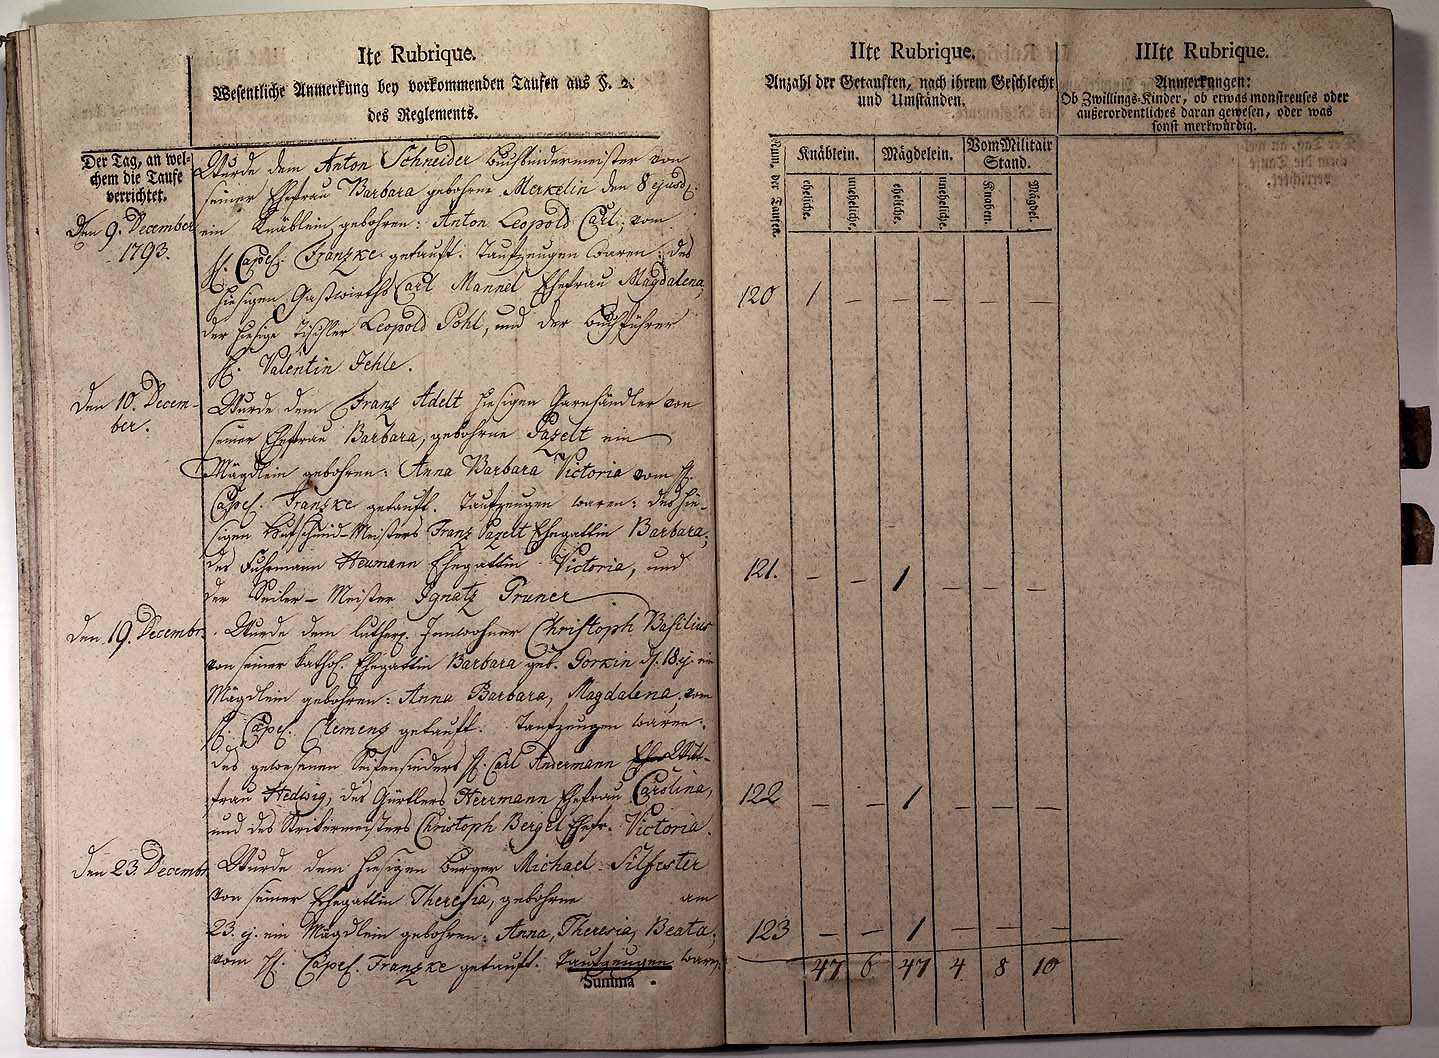 Ite Rubrique.
Wesentliche Anmerkung bey vorkommenden Taufen aus §. 2.
des Reglements.
Der Tag, an wel-
chem die Taufe
verrichtet.
Den 9. December
1793.
Wurde dem Anton Schneider Buchbindermeister von
seiner Ehefrau Barbara gebohrne Merkelin den 8 ejusd.
ein Knäblein gebohren: Anton Leopold Carl; vom
H. Capel. Franzke getauft. Taufzeugen waren: des
hiesigen Gastwirths Carl Mannel Ehefrau Magdalena,
der hiesige Tischler Leopold Pohl, und der Buchführer
H. Valentin Jehle.
Den 10. Decem-
ber.
Wurde dem Franz Adelt hiesigen Garnhändler von
seiner Ehefrau Barbara, gebohrne Pazelt ein
Mägdlein gebohren: Anna Barbara Victoria vom H.
Capel. Franzke getauft. Taufzeugen waren: des hie-
sigen Hufschmid-Meisters Franz Pazelt Ehegattin Barbara;
des Fuhrmann Heumann Ehegattin Victoria, und
der Seiler-Meister Ignatz Pruner
Den 19. Decembr.
Wurde dem luther. Innwohner Christoph Basilius
von seiner kathol. Ehegattin Barbara geb. Gorkin d. 18. ej. ein
Mägdlein gebohren: Anna Barbara, Magdalena; vom
H. Capel. Clemens getauft. Taufzeugen waren:
des gewesenen Seifensieders H. Carl Andermann
frau Hedwig, des Gürtlers Herrmann Ehefrau Carolina,
und des Strikermeisters Christoph Bergel Ehefr. Victoria.
Den 23. Decembr.
Wurde dem hiesigen Burger Michael Silfester
von seiner Ehegattin Theresia, gebohrne am
23. ej. ein Mägdlein gebohren: Anna, Theresia, Beata;
vom H. Capel. Franzke getauft. Taufzeugen warn.
Summa
IIte Rubrique.
Anzahl der Getauften, nach ihrem Geschlecht
und Umständen.
Num. der Taufen.
Knäblein. Mägdelein. Vom Militair
Stand.
eheliche. uneheliche. eheliche. uneheliche. Knaben. Mägdel.
120 1 – – – – –
121. – – 1 – – –
122 – – 1 – – –
123 – – 1 – – –
47 6 47 4 8 10
IIIte Rubrique.
Anmerkungen:
Ob Zwillings-Kinder, ob etwas monstreuses oder
außerordentliches daran gewesen, oder was
sonst merkwürdig.